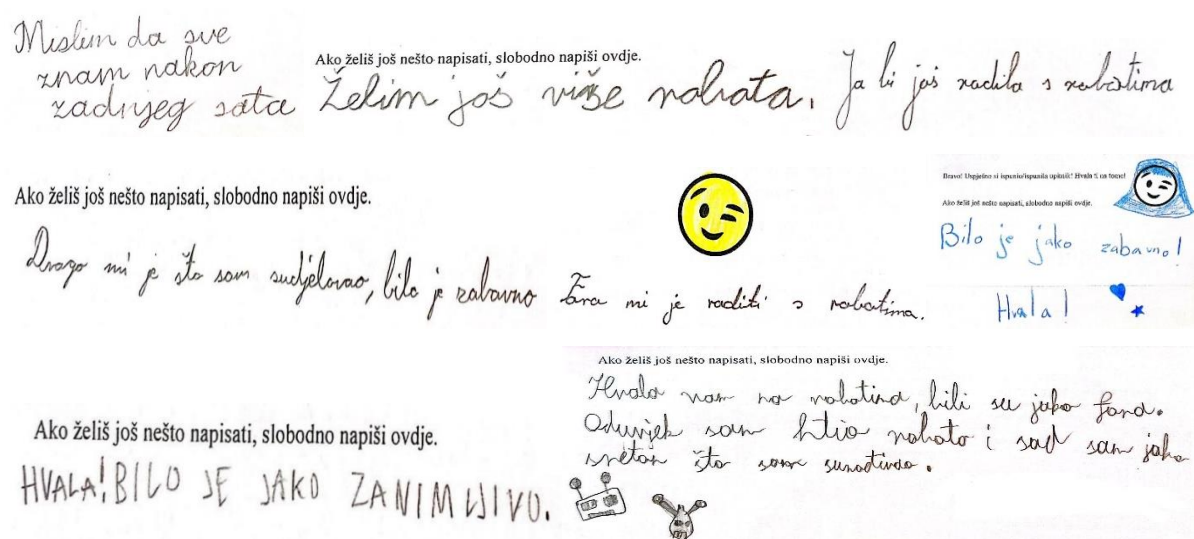 Mislim da sve
znam nakon
zadnjeg sata
Ako želiš još nešto napisati, slobodno napiši ovdje.
Želim još više robota.
Ja bi još radila s robotima
Ako želiš još nešto napisati, slobodno napiši ovdje.
Drago mi je što sam sudjelovao, bilo je zabavno
Fora mi je raditi s robotima.
Bravo! Uspješno si ispunio/ispunila upitnik! Hvala ti na tome!
Ako želiš još nešto napisati, slobodno napiši ovdje.
Bilo je jako zabavno!
Hvala!
Ako želiš još nešto napisati, slobodno napiši ovdje.
HVALA! BILO JE JAKO ZANIMLJIVO.
Ako želiš još nešto napisati, slobodno napiši ovdje.
Hvala vam na robotima, bili su jako fora.
Oduvjek sam htio robota i sad sam jako
sretan što sam